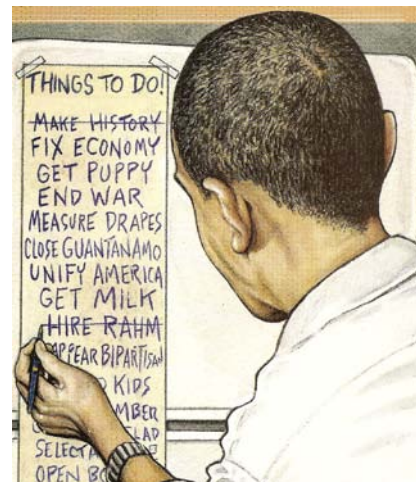 THINGS TO DO!
MAKE HISTORY
FIX ECONOMY
GET PUPPY
END WAR
MEASURE DRAPES
CLOSE GUANTANAMO
UNIFY AMERICA
GET MILK
HIRE RAHM
APPEAR BIPARTISAN
KIDS
OPEN